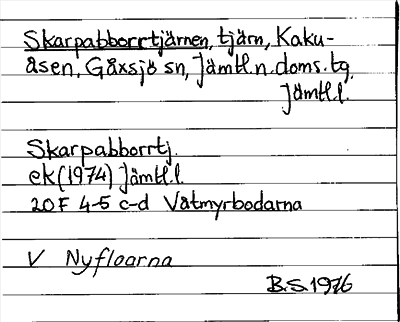 Skarpabborrtjärnen, tjärn, Kaku-
åsen, Gåxsjö sn, Jämtl.n.doms.tg.
Jämtl.l.
Skarpabborrtj.
ek (1974) Jämtl.l.
20F 4-5 c-d Våtmyrbodarna
V Nyfloarna
B.S. 1976